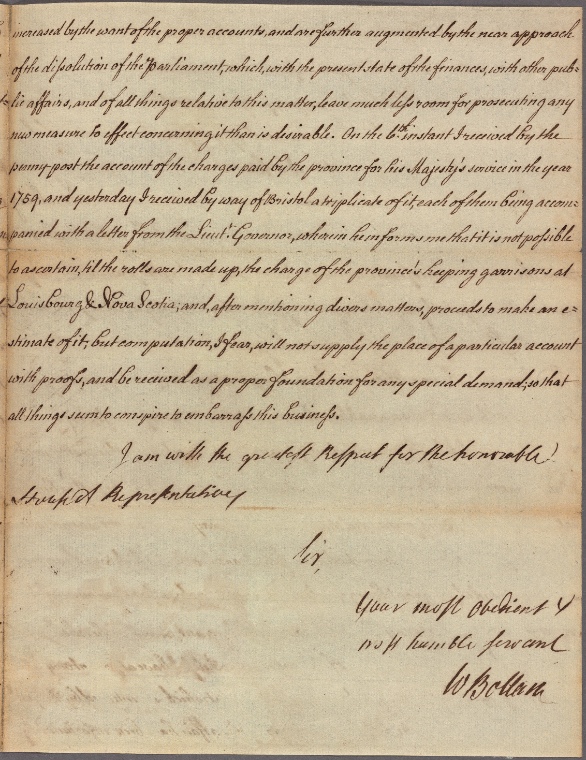 increased by the want of the proper accounts, and are further augmented by the near approach
of the dissolution of the Parliament, which, with the present state of the finances, with other pub-
lic affairs, and of all things relative to this matter, leave much less room for prosecuting any
new measure to effect concerning it than is desirable. On the 6th instant I received by the
penny-post the account of the charges paid by the province for his Majesty's service in the year
1759, and yesterday I received by way of Bristol a triplicate of it, each of them being accom-
panied with a letter from the Lieut. Governor, wherein he informs me that it is not possible
to ascertain, til the rolls are made up, the charge of the province's keeping garrisons at
Louisbourg & Nova Scotia; and, after mentioning divers matters, proceeds to make an e-
stimate of it; but computation, I fear, will not supply the place of a particular account
with proofs, and be received as a proper foundation for any special demand; so that
all things seem to conspire to embarrass this business.
I am with the greatest Respect for the honorable
House of Representatives
Sir,
Your most obedient &
most humble servant
W Bollan